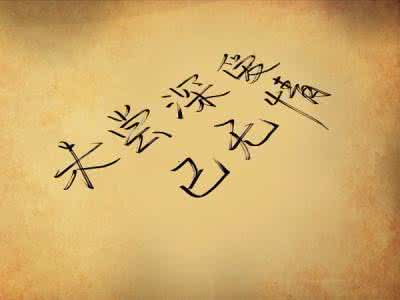 未尝深爱
已无情